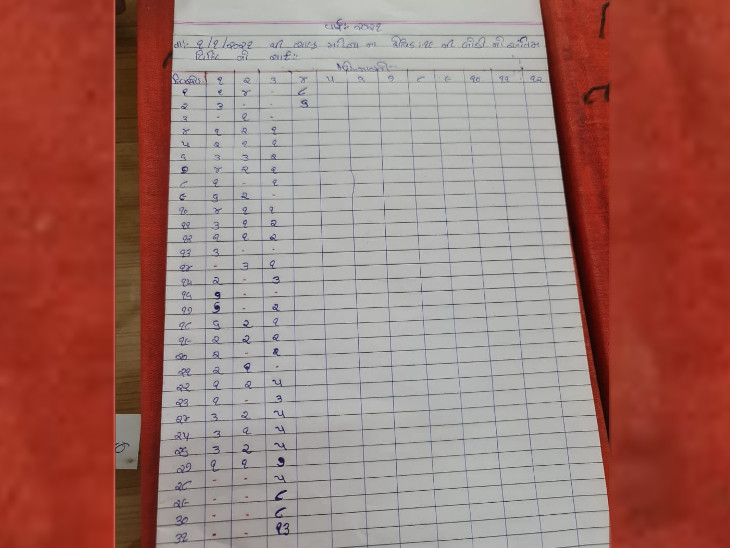 વર્ષ:- ૨૦૨૧
તા:- ૧/૧/૨૦૨૧ થી
વિધિ ની
૧ ૨ ૩ ૪ ૫ ૬ ૭ ૮ ૯ ૧૦ ૧૧ ૧૨
૧ ૧ ૪ - ૮
૨ ૩ - - ૭
૩ - ૧ -
૪ ૧ ૨ ૧
૫ ૨ ૧ ૧
૬ ૩ ૩ ૨
૭ ૪ ૨ ૧
૮ ૧ - ૧
૯ ૬ ૨ -
૧૦ ૪ ૧ ૧
૧૧ ૩ ૧ ૨
૧૨ ૧ ૧ ૨
૧૩ ૩ - -
૧૪ - ૩ ૧
૧૫ ૨ - ૩
૧૬ - -
૧૭ - ૨
૧૮ ૨ ૧
૧૯ ૨ ૨ ૨
૨૦ ૨ - ૨
૨૧ ૨ ૧ -
૨૨ ૧ ૨ ૫
૨૩ ૧ - ૩
૨૪ ૩ ૨ ૫
૨૫ ૩ ૧ ૫
૨૬ ૩ ૨ ૫
૨૭ ૧ ૧ ૭
૨૮ - - ૫
૨૯ - - ૮
૩૦ - - ૮
૩૧ - - ૧૩